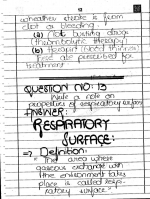 whether stroke is from
clot or bleeding.
(a) Clots busting drugs
(thrombolytic therapy)
(b) (blood thinners)
are prescribed for
treatment
QUESTION NO: 13
Write a note on
properties of respiratory surface
ANSWER:
RESPIRATORY
SURFACE:
=> Definition:
"The area where
gaseous exchange with
the environment takes
place is called resp-
ratory surface."